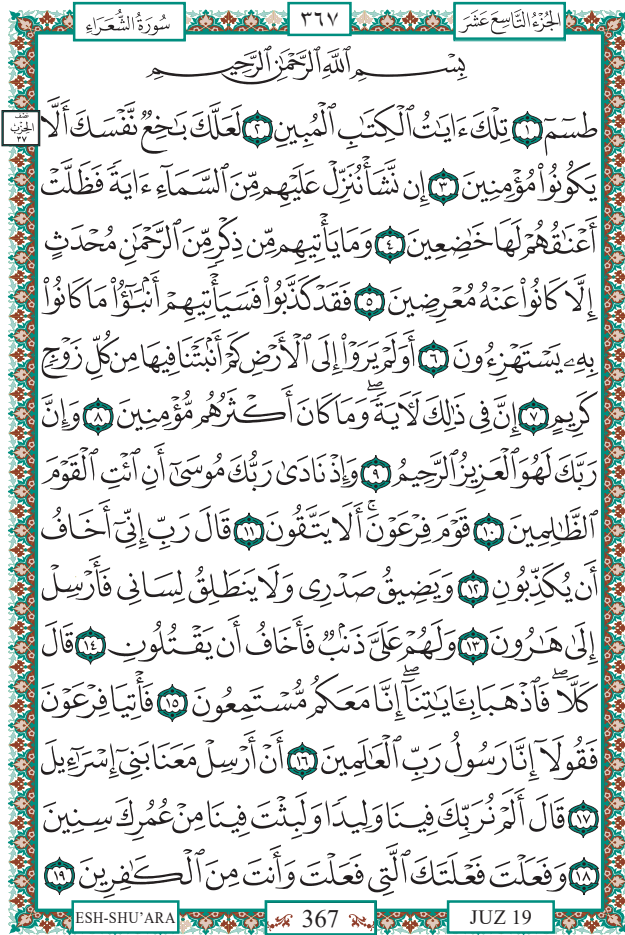 سُورَةُ الشُّعَرَاءِ ٣٦٧ الجُزْءُ التَّاسِعَ عَشَرَ
بِسْمِ ٱللَّهِ ٱلرَّحْمَٰنِ ٱلرَّحِيمِ
طسٓمٓ ١ تِلْكَ ءَايَٰتُ ٱلْكِتَٰبِ ٱلْمُبِينِ ٢ لَعَلَّكَ بَٰخِعٌ نَّفْسَكَ أَلَّا
نصف الحزب ٣٧
يَكُونُوا۟ مُؤْمِنِينَ ٣ إِن نَّشَأْ نُنَزِّلْ عَلَيْهِم مِّنَ ٱلسَّمَآءِ ءَايَةً فَظَلَّتْ
أَعْنَٰقُهُمْ لَهَا خَٰضِعِينَ ٤ وَمَا يَأْتِيهِم مِّن ذِكْرٍ مِّنَ ٱلرَّحْمَٰنِ مُحْدَثٍ
إِلَّا كَانُوا۟ عَنْهُ مُعْرِضِينَ ٥ فَقَدْ كَذَّبُوا۟ فَسَيَأْتِيهِمْ أَنۢبَٰٓؤُا۟ مَا كَانُوا۟
بِهِۦ يَسْتَهْزِءُونَ ٦ أَوَلَمْ يَرَوْا۟ إِلَى ٱلْأَرْضِ كَمْ أَنۢبَتْنَا فِيهَا مِن كُلِّ زَوْجٍ
كَرِيمٍ ٧ إِنَّ فِى ذَٰلِكَ لَءَايَةً ۖ وَمَا كَانَ أَكْثَرُهُم مُّؤْمِنِينَ ٨ وَإِنَّ
رَبَّكَ لَهُوَ ٱلْعَزِيزُ ٱلرَّحِيمُ ٩ وَإِذْ نَادَىٰ رَبُّكَ مُوسَىٰٓ أَنِ ٱئْتِ ٱلْقَوْمَ
ٱلظَّٰلِمِينَ ١٠ قَوْمَ فِرْعَوْنَ ۚ أَلَا يَتَّقُونَ ١١ قَالَ رَبِّ إِنِّىٓ أَخَافُ
أَن يُكَذِّبُونِ ١٢ وَيَضِيقُ صَدْرِى وَلَا يَنطَلِقُ لِسَانِى فَأَرْسِلْ
إِلَىٰ هَٰرُونَ ١٣ وَلَهُمْ عَلَىَّ ذَنۢبٌ فَأَخَافُ أَن يَقْتُلُونِ ١٤ قَالَ
كَلَّا ۖ فَٱذْهَبَا بِـَٔايَٰتِنَآ ۖ إِنَّا مَعَكُم مُّسْتَمِعُونَ ١٥ فَأْتِيَا فِرْعَوْنَ
فَقُولَآ إِنَّا رَسُولُ رَبِّ ٱلْعَٰلَمِينَ ١٦ أَنْ أَرْسِلْ مَعَنَا بَنِىٓ إِسْرَٰٓءِيلَ
١٧ قَالَ أَلَمْ نُرَبِّكَ فِينَا وَلِيدًا وَلَبِثْتَ فِينَا مِنْ عُمُرِكَ سِنِينَ
١٨ وَفَعَلْتَ فَعْلَتَكَ ٱلَّتِى فَعَلْتَ وَأَنتَ مِنَ ٱلْكَٰفِرِينَ ١٩
ESH-SHU'ARA 367 JUZ 19